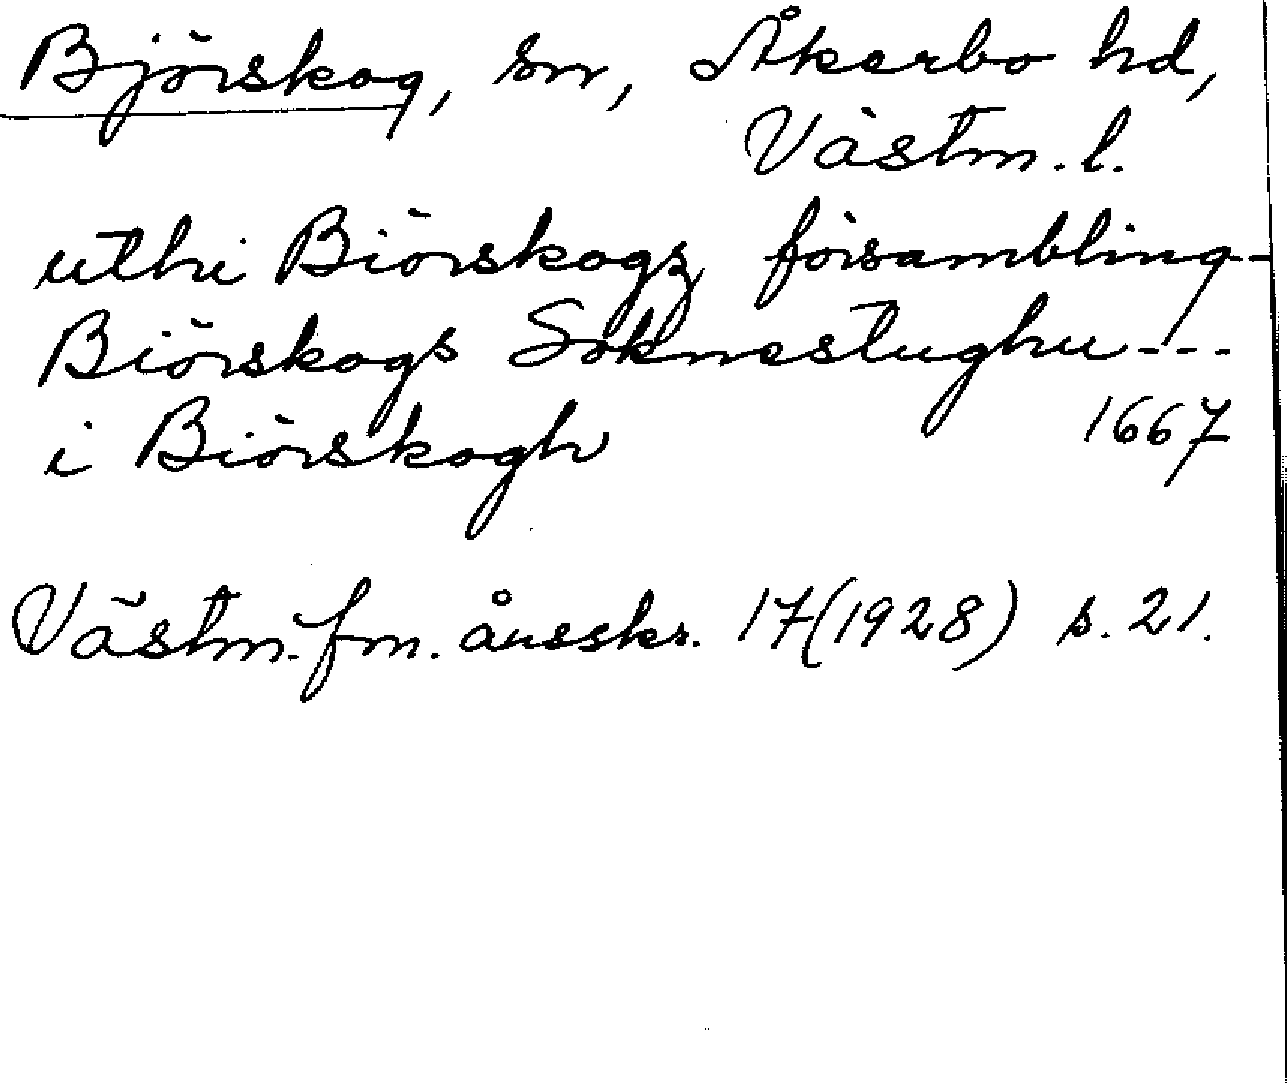 Björskog, sn, Åkerbo hd,
Västm. l.
uthi Biörskogz försambling-
Biörskogs Soknestughu ---
i Biörskogh 1667
Västm. fm. årsskr. 17 (1928) s. 21.